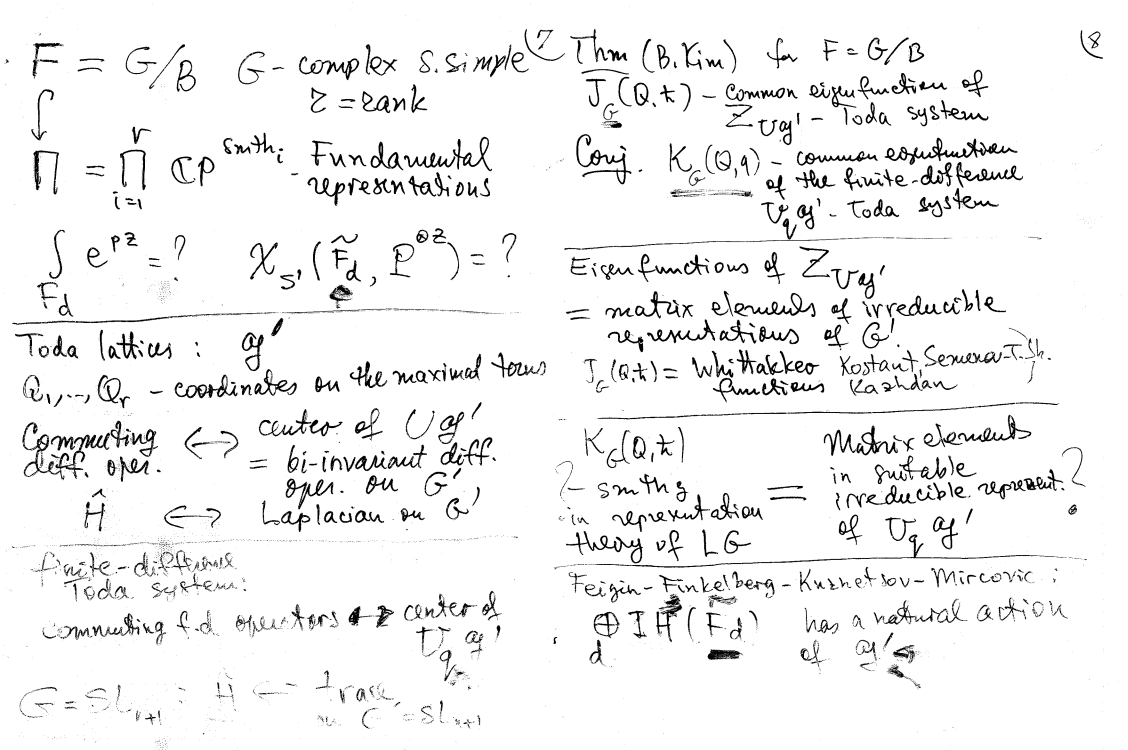 7
F = G/B G - complex s. simple
r = rank
Π = ∏_{i=1}^{r} ℂP^{smth_i} - Fundamental
representations
∫_{F_d} e^{pz} = ? χ_{S'} (F̃_d, P^{⊗z}) = ?
Toda lattices : 𝔤'
Q_1, .., Q_r - coordinates on the maximal torus
Commuting diff. oper. ↔ center of U𝔤'
= bi-invariant diff.
oper. on G'
Ĥ ↔ Laplacian on G'
finite-difference
Toda system:
commuting f.d. operators ↔ center of
U_q 𝔤'
G = SL_{r+1} : Ĥ ← trace
on G' = SL_{r+1}
8
Thm (B. Kim) for F = G/B
J_G (Q, ℏ) - common eigenfunction of
Z_{U𝔤'} - Toda system
Conj. K_G (Q, q) - common eigenfunction
of the finite-difference
U_q 𝔤' - Toda system
Eigenfunctions of Z_{U𝔤'}
= matrix elements of irreducible
representations of G'.
J_G (Q, ℏ) = Whittakker functions
Kostant, Semenov-T.Sh.
Kazhdan
K_G (Q, ℏ)
? - smthg
in representation
theory of LG
=
Matrix elements
in suitable
irreducible represent. ?
of U_q 𝔤'
Feigin-Finkelberg-Kuznetsov-Mircovic :
⊕_d IH (F̃_d) has a natural action
of 𝔤'